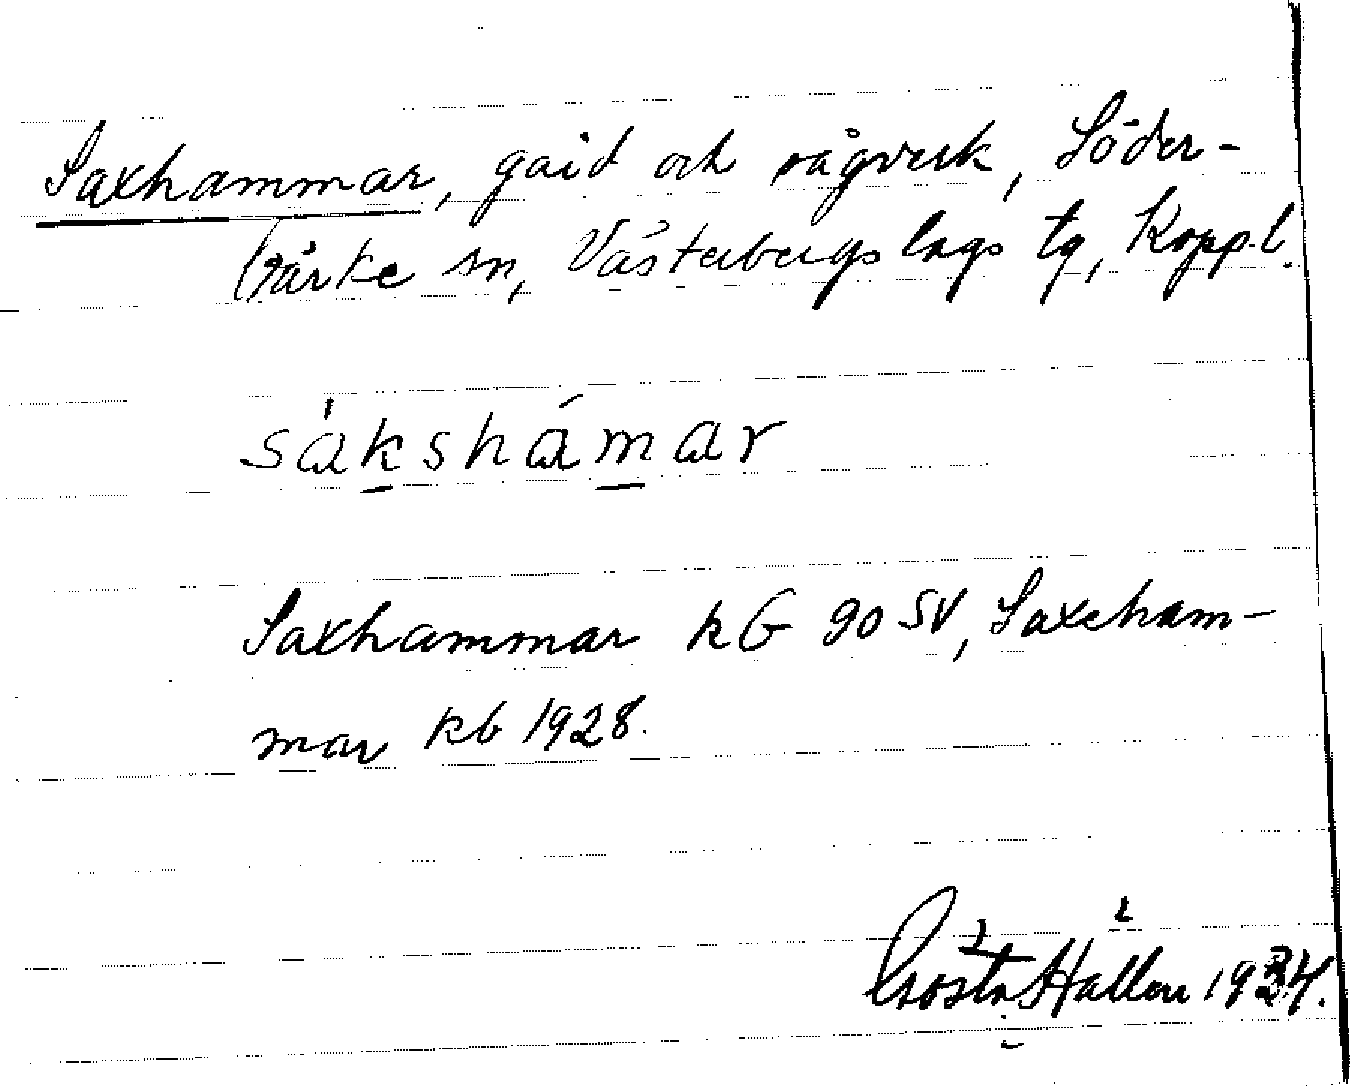 Saxhammar, gård och sågverk, Söder-
bärke sn, Västerbergslags tg, Koppl.
sákshámar
Saxhammar kb 90 SV, Saxeham-
mar kb 1928.
Gösta Hallen 1934.